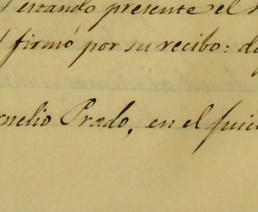 estando presente el
firmó por su recibo: d
nelio Prado, en el juic